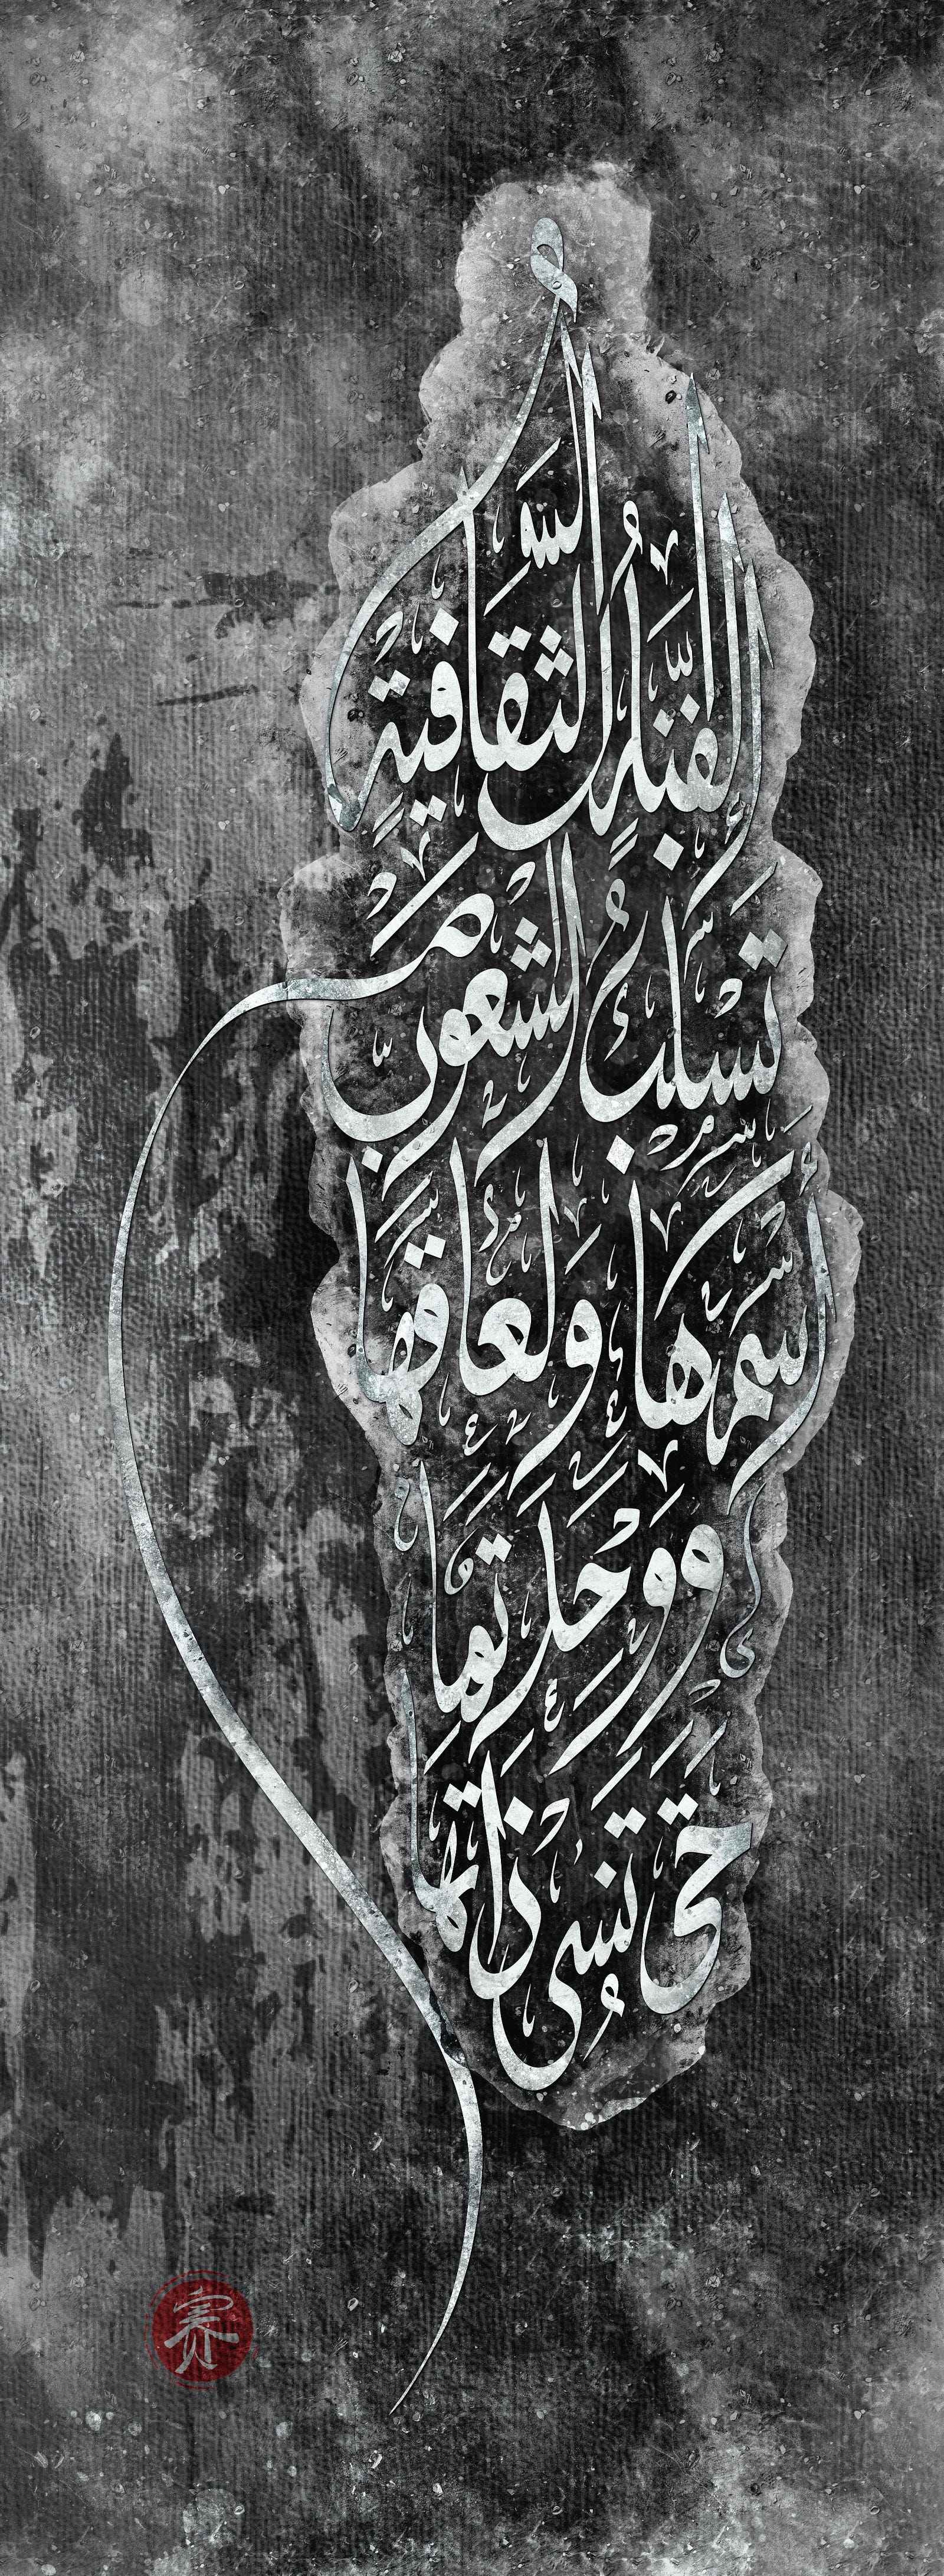 القنبلة الثقافية اليوم
تسلب الشعوب
اسمها ولغاتها
ووحدتها
حتى تنسى ذاتها